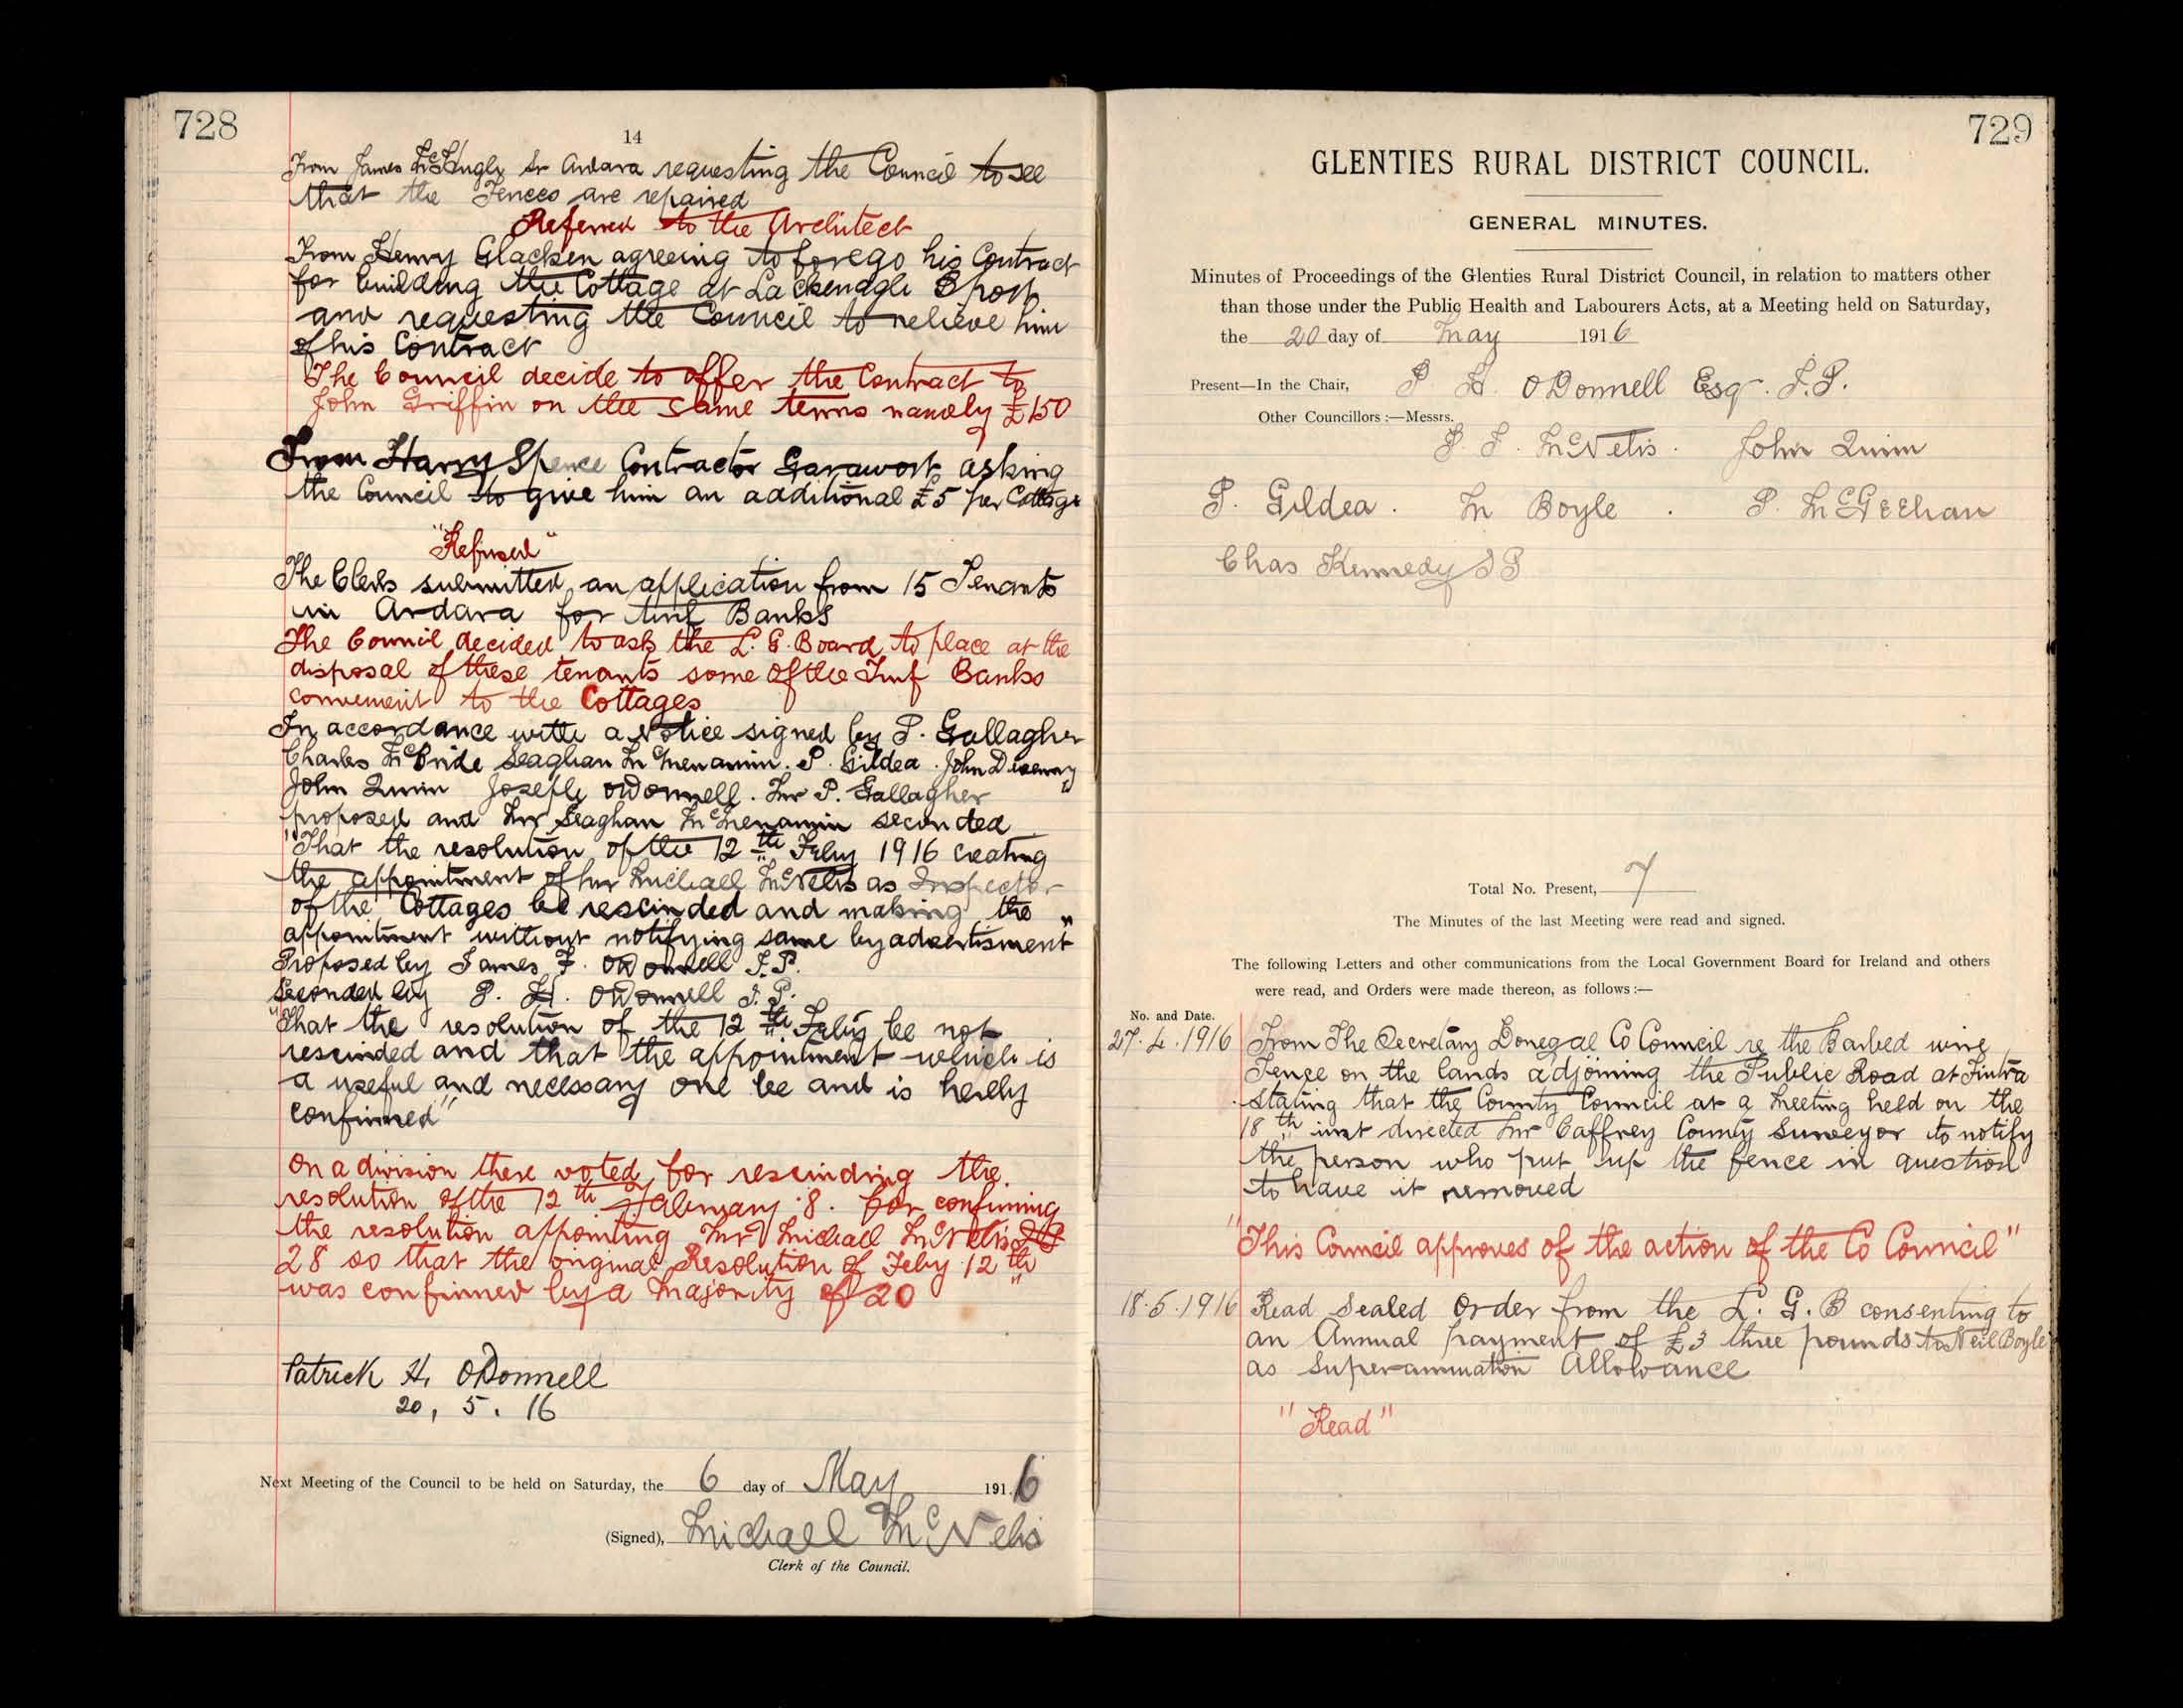 728
14
From James McHugh Sr Ardara requesting the Council to see
that the Fences are repaired
Referred to the Architect
From Henry Glacken agreeing to forego his Contract
for building the Cottage at Lackenagh
and requesting the Council to relieve him
of his Contract
The Council decide to offer the Contract to
John Griffin on the same terms namely £150
From Harry Spence Contractor asking
the Council to give him an additional £5 per Cottage
"Refused"
The Clerk submitted an application from 15 Tenants
in Ardara for turf Banks
The Council decided to ask the L. G. Board to place at the
disposal of these tenants some of the Turf Banks
convenient to the Cottages
In accordance with a Notice signed by P. Gallagher
Charles McBride Seaghan McMenamin. P. Gildea. John
John Quinn Joseph O'Donnell. Mr P. Gallagher
proposed and Mr Seaghan McMenamin seconded
"That the resolution of the 12th Feby 1916 creating
the appointment of Mr Michael McNelis as Inspector
of the Cottages be rescinded and making the
appointment without notifying same by advertisment"
Proposed by James F. O'Donnell J.P.
Seconded by P. H. O'Donnell J.P.
"That the resolution of the 12th Feby be not
rescinded and that the appointment which is
a useful and necessary one be and is hereby
confirmed"
On a division there voted for rescinding the
resolution of the 12th February 8. for confirming
the resolution appointing Mr Michael McNelis
28 so that the original Resolution of Feby 12th
was confirmed by a majority of 20
Patrick H. O'Donnell
20, 5. 16
Next Meeting of the Council to be held on Saturday, the 6 day of May 1916
(Signed), Michael McNelis
Clerk of the Council.
729
GLENTIES RURAL DISTRICT COUNCIL.
GENERAL MINUTES.
Minutes of Proceedings of the Glenties Rural District Council, in relation to matters other
than those under the Public Health and Labourers Acts, at a Meeting held on Saturday,
the 20 day of May 1916
Present—In the Chair, P H ODonnell Esq. J.P.
Other Councillors:—Messrs.
McNelis. John Quinn
P. Gildea. M Boyle. P. McGeehan
Chas Kennedy JP
Total No. Present, 7
The Minutes of the last Meeting were read and signed.
The following Letters and other communications from the Local Government Board for Ireland and others
were read, and Orders were made thereon, as follows:—
No. and Date.
27.4.1916 From The Secretary Donegal Co Council re the Barbed wire
Fence on the lands adjoining the Public Road at Fintra
stating that the County Council at a meeting held on the
18th inst directed Mr Caffrey County Surveyor to notify
the person who put up the fence in question
to have it removed
"This Council approves of the action of the Co Council"
18.5.1916 Read Sealed Order from the L. G. B consenting to
an Annual payment of £3 three pounds to Neil Boyle
as Superannuation Allowance
"Read"